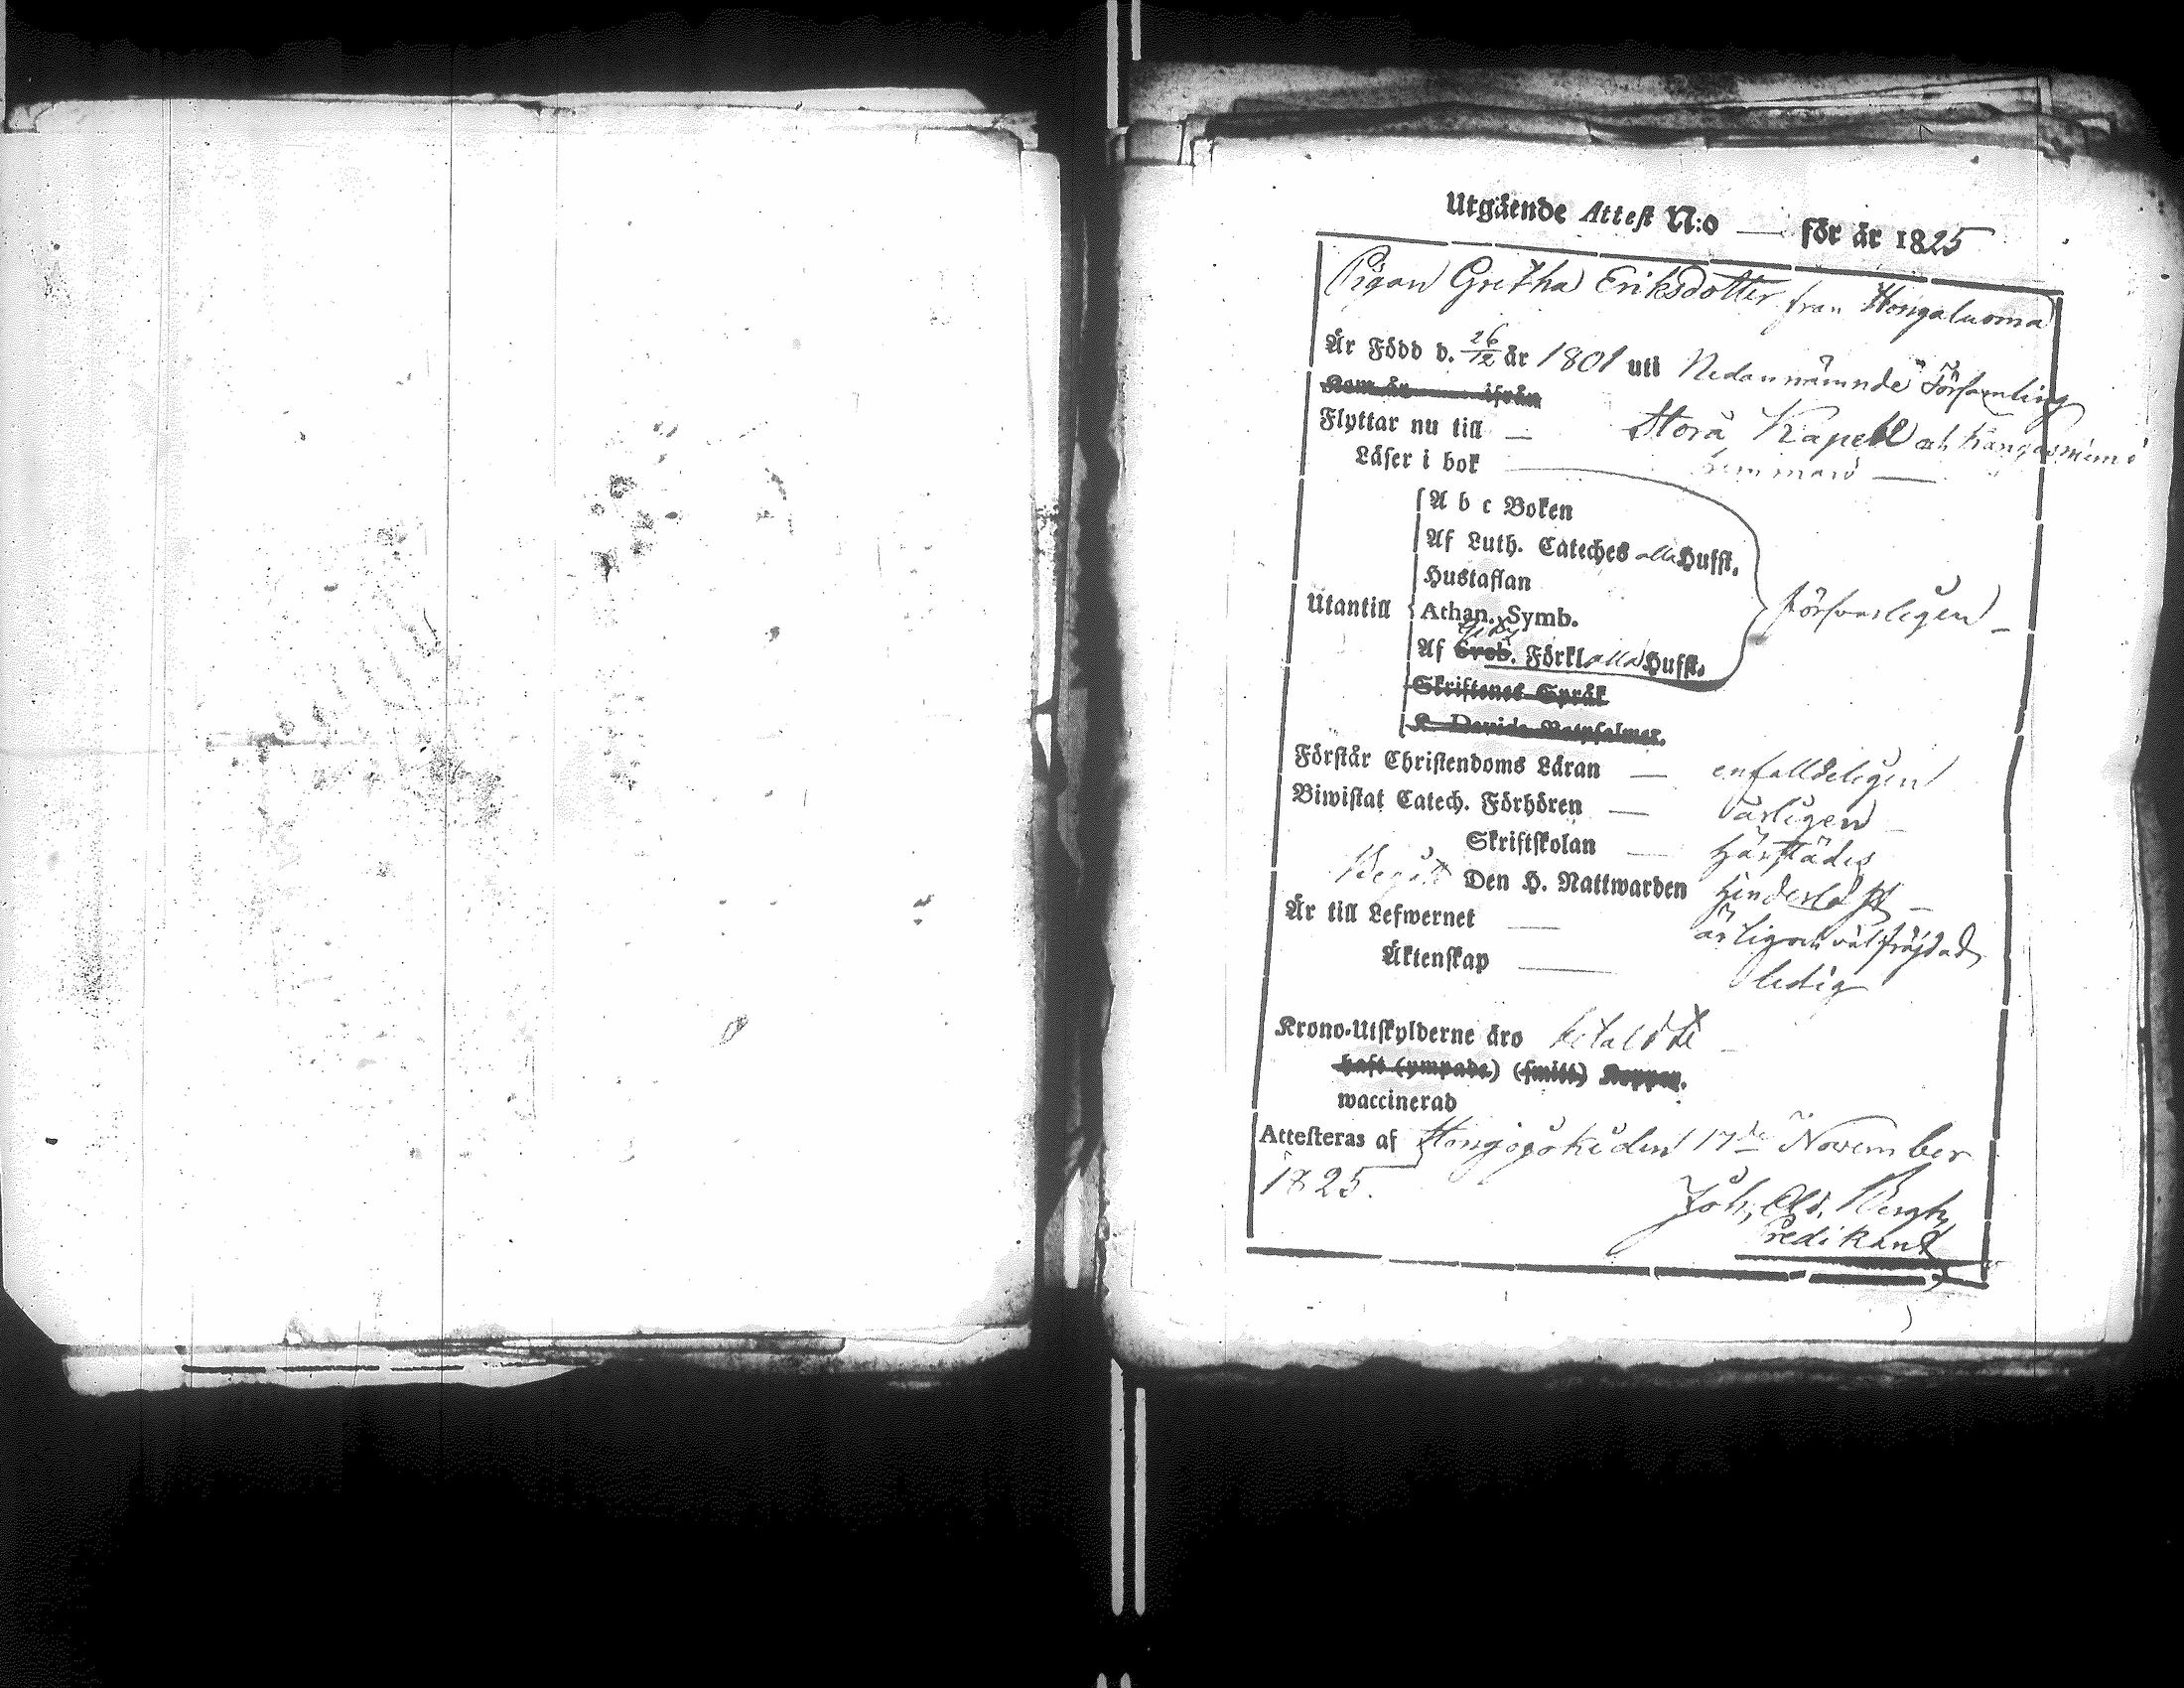 Utgående Attest N:o — för år 1825
Pigan Gretha Eriksdotter från Hongaluoma
Är Född d. 26/12 år 1801 uti Nedannämnde Församling
Kom år ifrån
Flyttar nu till — Storå Kapell och Kangasniemi
Läser i bok hemman —
A b c Boken
Af Luth. Cateches alla Hufst.
Hustaflan
Utantill Athan. Symb. försvarligen —
Af Grob. Förkl alla Hufst.
Skriftenes Språk
K. Davids Botpsalmer.
Förstår Christendoms Läran — enfalldeligen
Biwistat Catech. Förhören — årligen —
Skriftskolan — härstädes
Begått Den H. Nattwarden hinderlöst —
Är till Lefwernet — ärlig och välfräjdad
Äktenskap — ledig
Krono-Utskylderne äro betaldte —
haft (ympade) (smitt) Koppor.
waccinerad
Attesteras af Hongojoki den 17de November
1825. Joh. Ad. Bergh,
Predikant